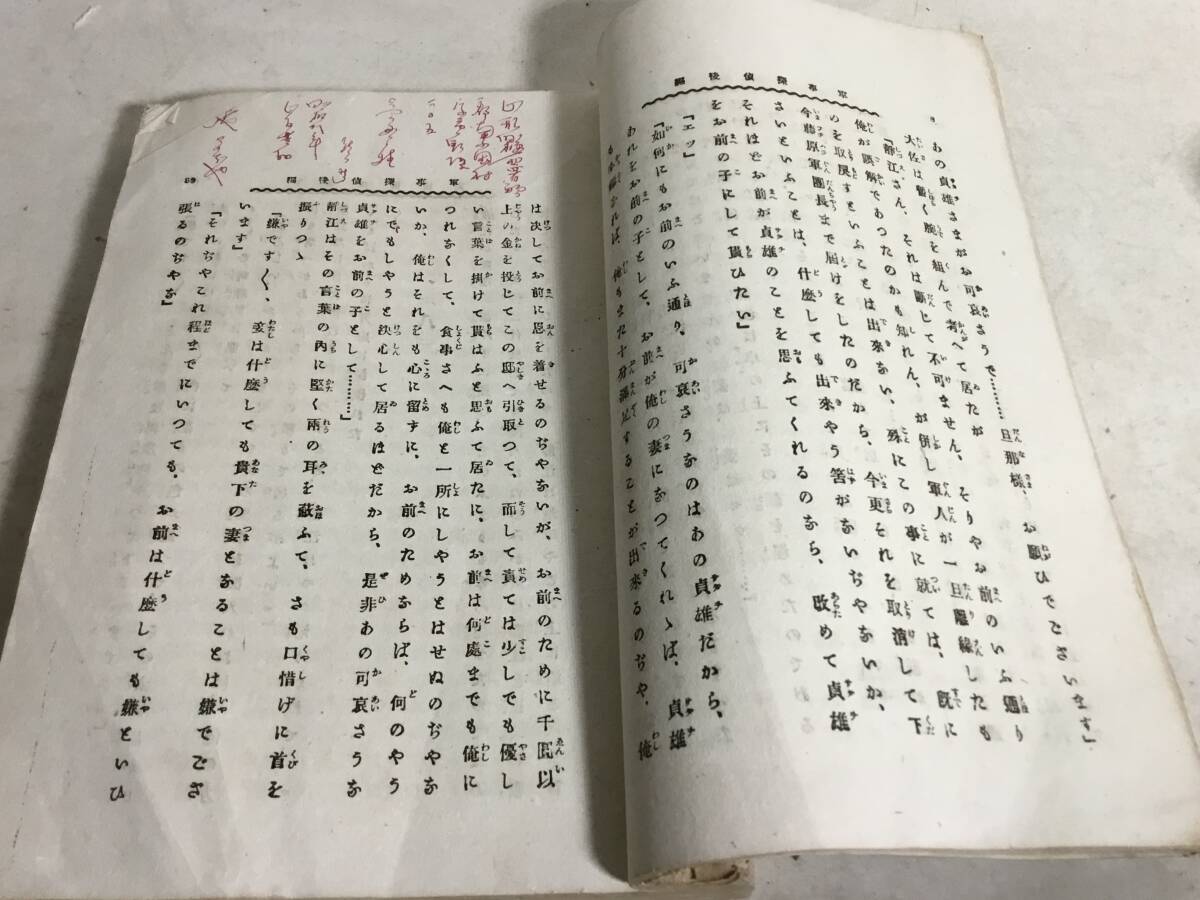 軍事探偵後編
あの貞雄さまがお可哀さうで………旦那様、お願ひでございます」
大佐は暫く腕を組んで考へて居たが
「靜江さん、それは斷じて不可ません、そりやお前のいふ通り
俺が誤解であつたのかも知れん、が併し軍人が一旦離緣したも
のを取戻すといふことは出來ない、殊にこの事に就ては、既に
今藤原軍團長まで屆けをしたのだから、今更それを取消して下
さいといふことは、什麽しても出來やう筈がないぢやないか、
それほどお前が貞雄のことを思ふてくれるのなら、改めて貞雄
をお前の子にして貰ひたい」
「エッ」
「如何にもお前のいふ通り、可哀さうなのはあの貞雄だから、
あれをお前の子として、お前が俺の妻になつてくれゝば、貞雄
も することが出來るのぢや、俺
軍事探偵後編
89
は決してお前に恩を着せるのぢやないが、お前のために千圓以
上の金を投じてこの邸へ引取つて、而して責ては少しでも優し
い言葉を掛けて貰はふと思ふて居たに、お前は何處までも俺に
つれなくして、食事さへも俺と一所にしやうとはせぬのぢやな
いか、俺はそれをも心に留ずに、お前のためならば、何のやう
にでもしやうと決心して居るほどだから、是非あの可哀さうな
貞雄をお前の子として………」
靜江はその言葉の內に堅く兩の耳を蔽ふて、さも口惜げに首を
振りつゝ
「嫌です〱、妾は什麽しても貴下の妻となることは嫌でござ
います」
「それぢやこれ程までにいつても、お前は什麽しても嫌といひ
張るのぢやな」